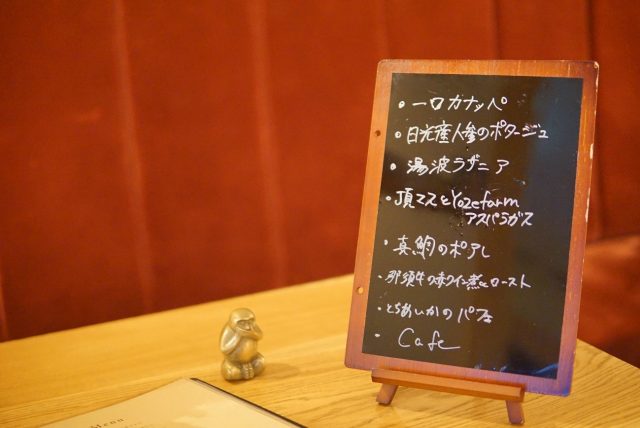 ・一口カナッペ
・日光産人参のポタージュ
・湯波ラザニア
・頂マスとYozefarm
アスパラガス
・真鯛のポアレ
・那須牛の赤ワイン煮とロースト
・とちあいかのパフェ
・Cafe
Menu